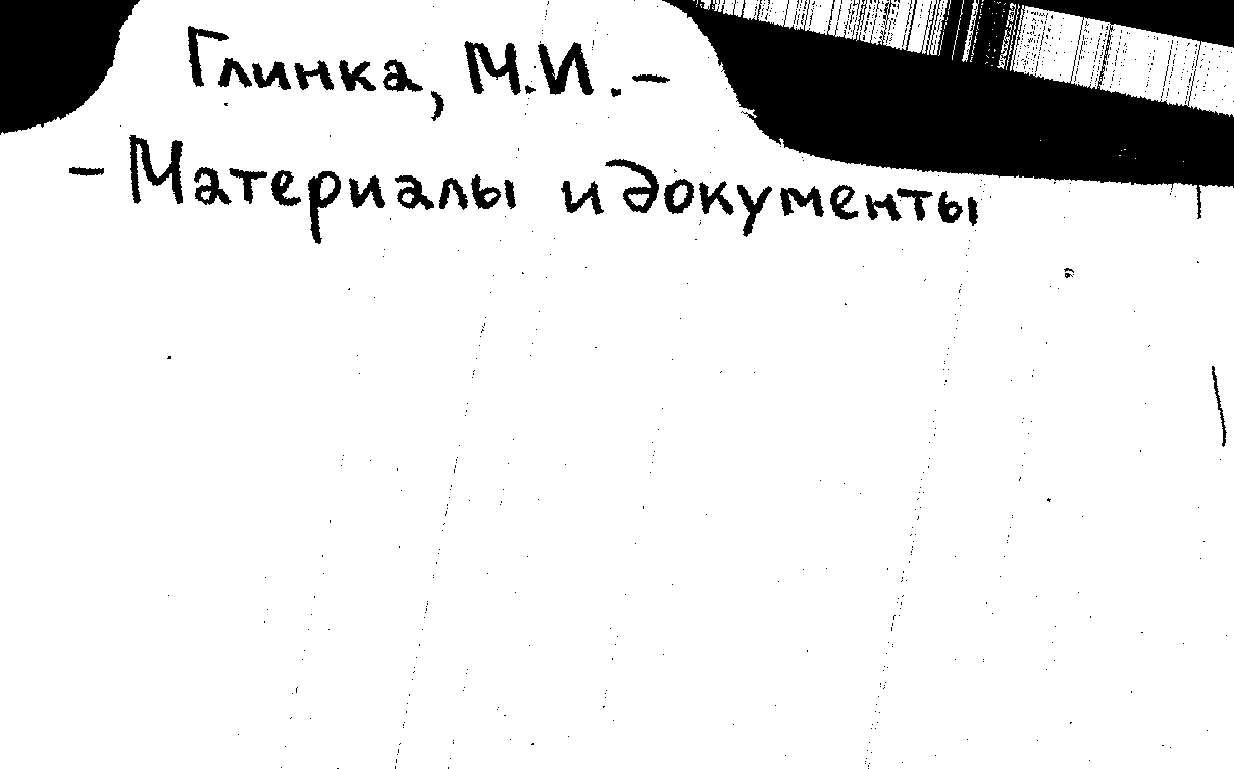 Глинка, М.И. –
– Материалы и документы